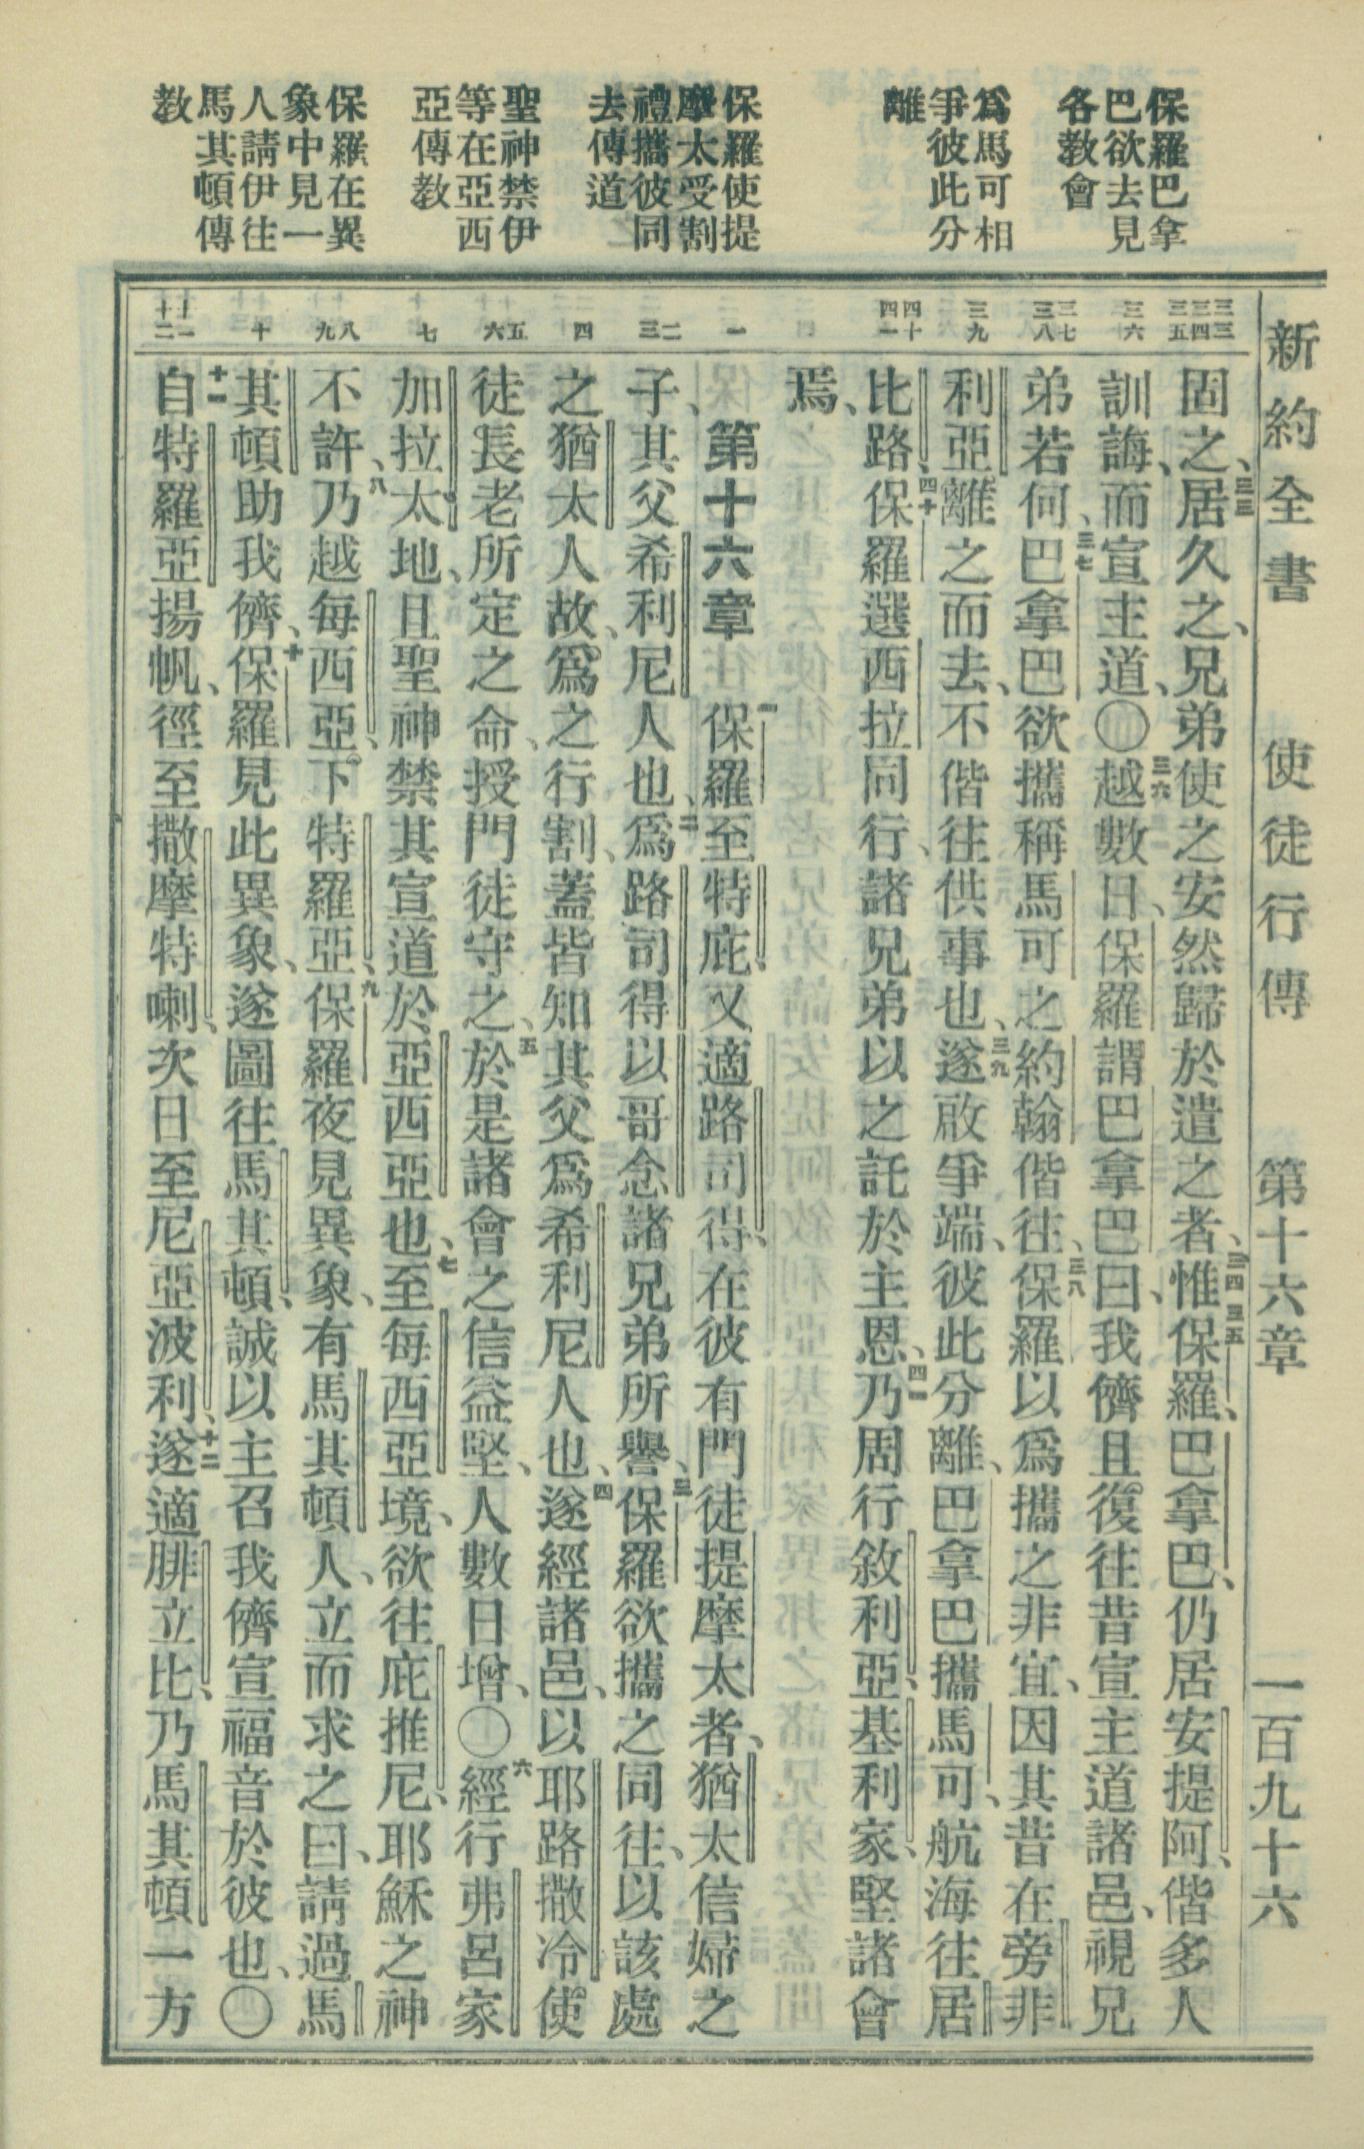 新約全書　使徒行傳　第十六章　一百九十六
保羅巴拿
巴欲去見
各教會
爲馬可相
爭彼此分
離
保羅使提
摩太受割
禮攜彼同
去傳道
聖神禁伊
等在亞西
亞傳教
保羅在異
象中見一
人請伊往
馬其頓傳
教
三三
三四
三五
三六
三七
三八
三九
四十
四一
一
二
三
四
五
六
七
八
九
十
十一
十二
固之、三三居久之、兄弟使之安然歸於遣之者、三四三五惟保羅、巴拿巴、仍居安提阿、偕多人
訓誨、而宣主道、〇三六越數日、保羅謂巴拿巴曰、我儕且復往昔宣主道諸邑、視兄
弟若何、三七巴拿巴欲攜稱馬可之約翰偕往、三八保羅以爲攜之非宜、因其昔在旁非
利亞離之而去、不偕往供事也、三九遂啟爭端、彼此分離、巴拿巴攜馬可、航海往居
比路、四十保羅選西拉同行、諸兄弟以之託於主恩、四一乃周行敘利亞、基利家、堅諸會
焉、
第十六章　一保羅至特庇、又適路司得、在彼有門徒提摩太者、猶太信婦之
子、其父希利尼人也、二爲路司得以哥念諸兄弟所譽、三保羅欲攜之同往、以該處
之猶太人故、爲之行割、蓋皆知其父爲希利尼人也、四遂經諸邑、以耶路撒冷使
徒長老所定之命、授門徒守之、五於是諸會之信益堅、人數日增、〇六經行弗呂家
加拉太地、且聖神禁其宣道於亞西亞也、七至每西亞境、欲往庇推尼、耶穌之神
不許、八乃越每西亞、下特羅亞、九保羅夜見異象、有馬其頓人、立而求之曰、請過馬
其頓助我儕、十保羅見此異象、遂圖往馬其頓、誠以主召我儕宣福音於彼也、〇
十一自特羅亞揚帆、徑至撒摩特喇、次日至尼亞波利、十二遂適腓立比、乃馬其頓一方